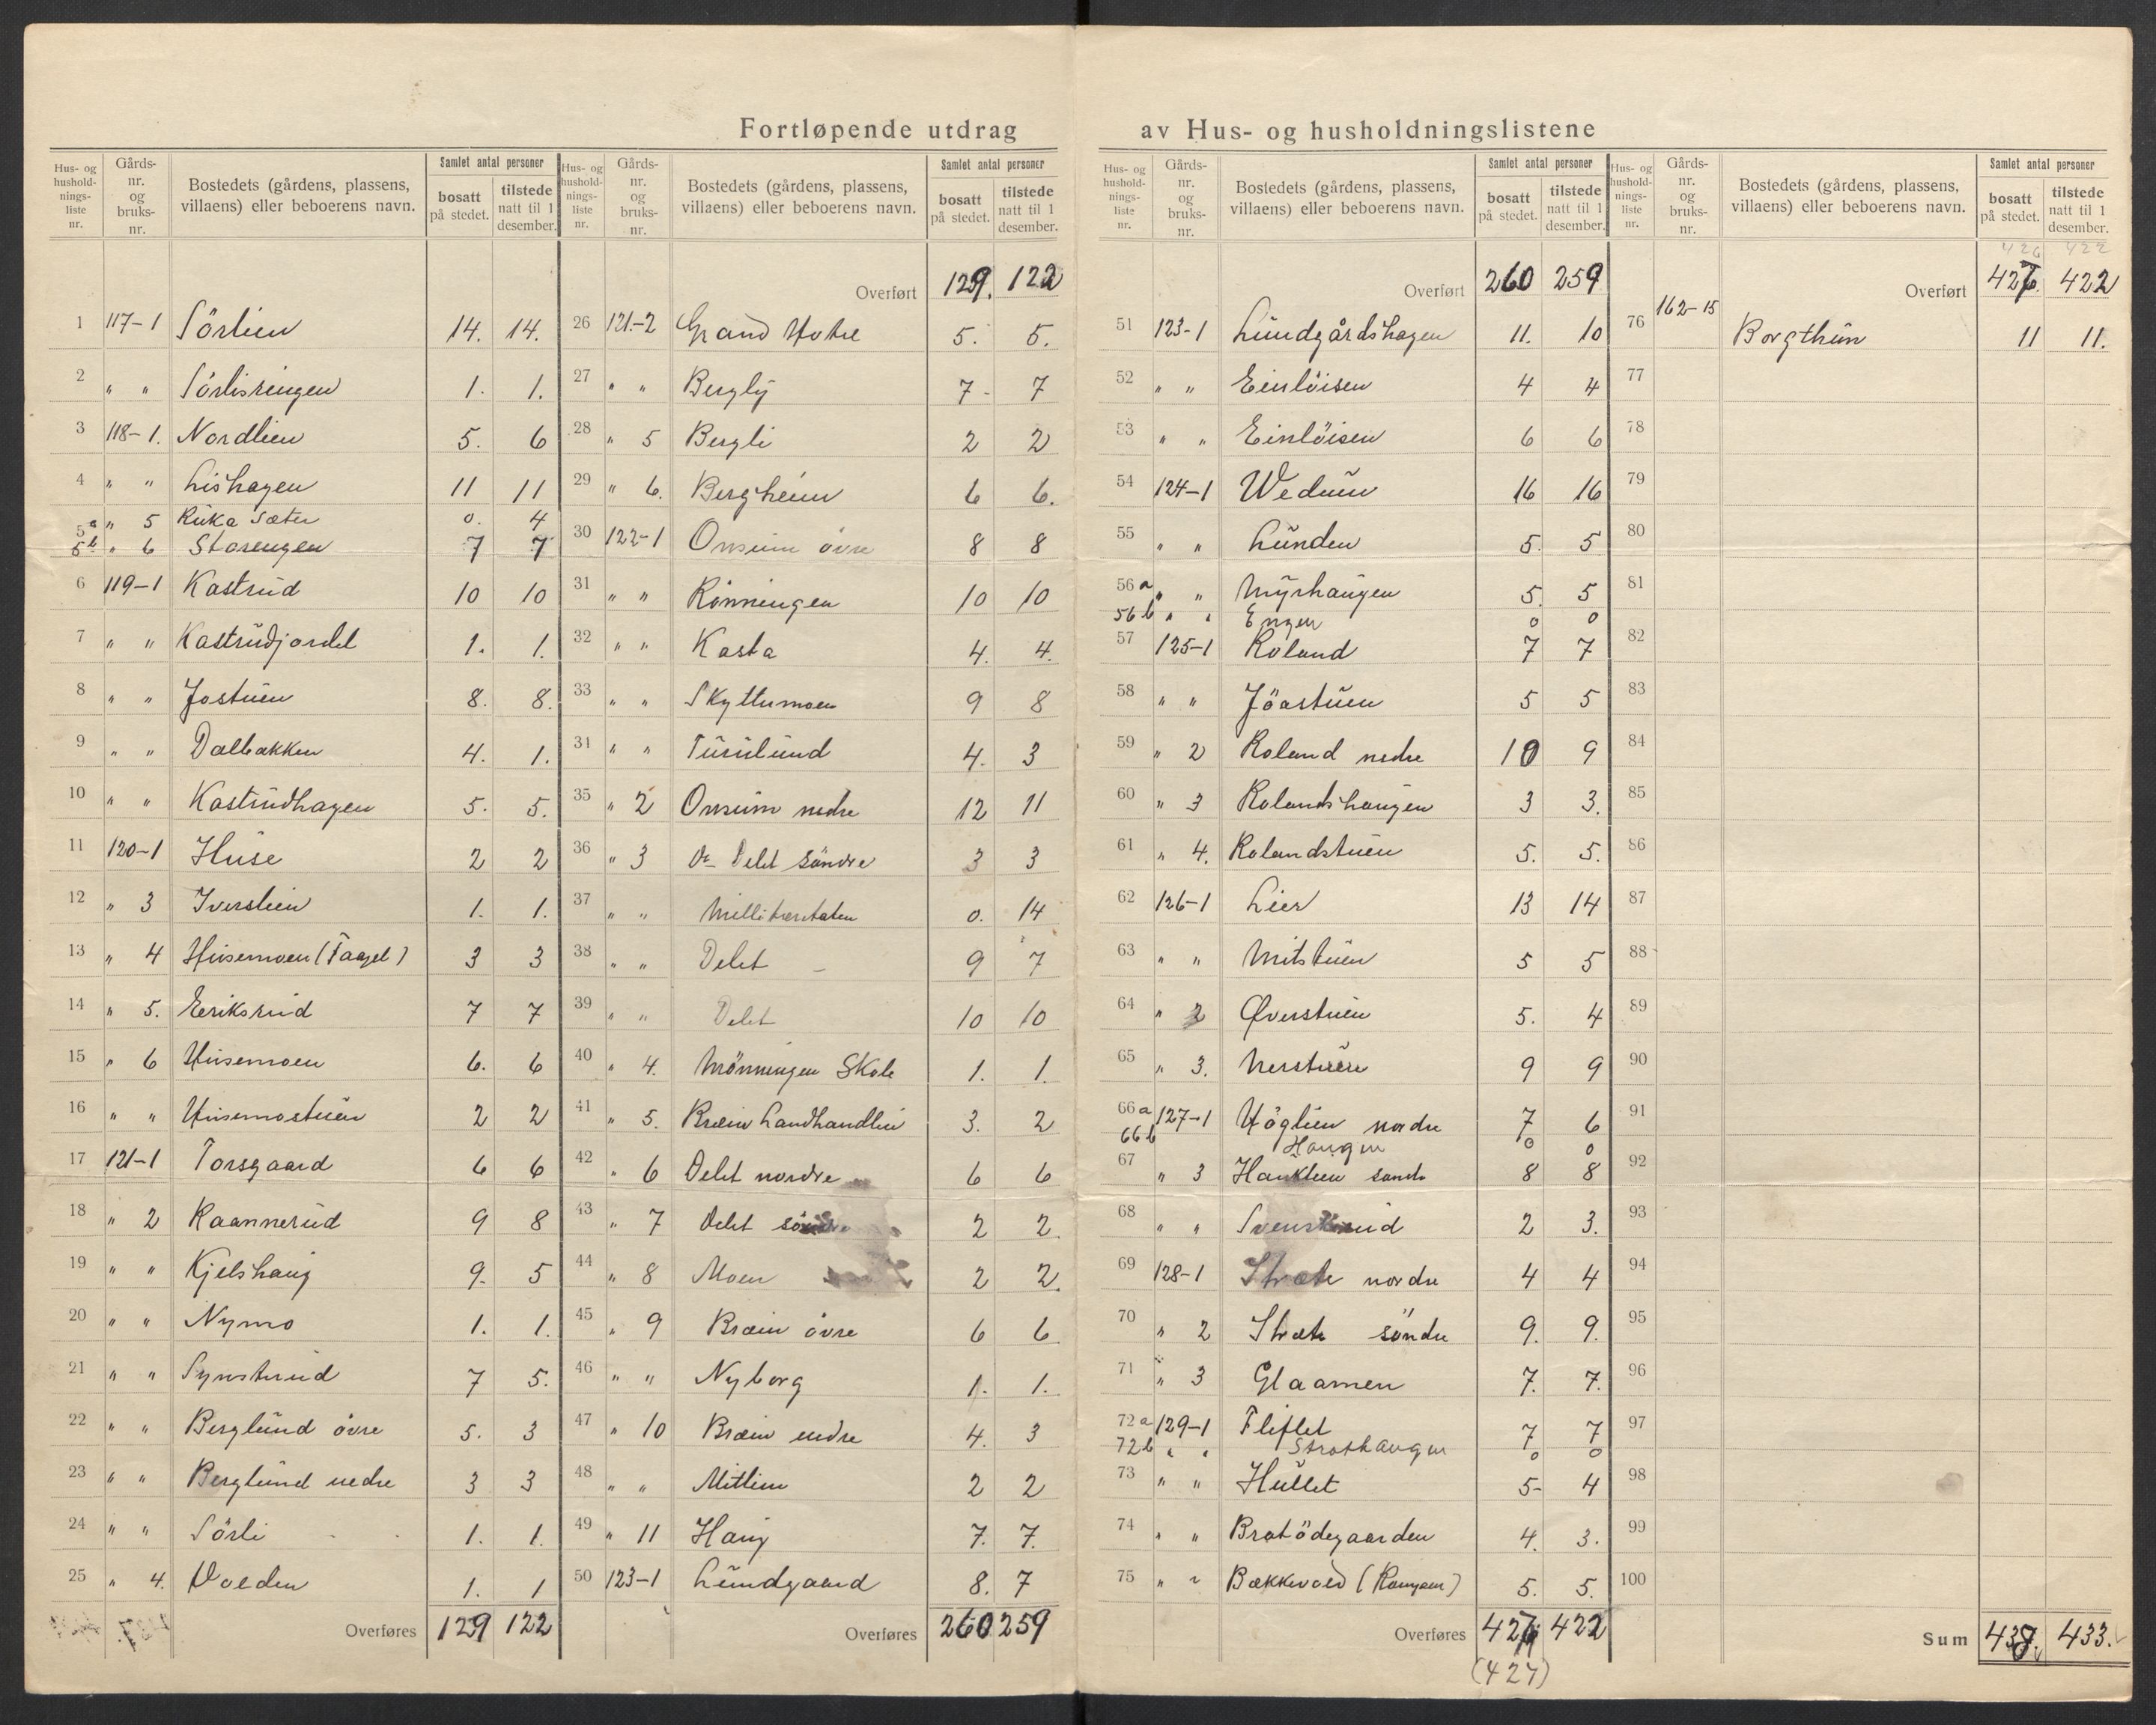 Fortløpende utdrag av Hus- og husholdningslistene
Hus- og hushold-nings-liste nr. | Gårds-nr. og bruks-nr. | Bostedets (gårdens, plassens, villaens) eller beboerens navn. | Samlet antal personer | bosatt på stedet. | tilstede natt til 1 desember.
1 117-1 Sörlien 14. 14.
2 " " Sörlisvingen 1. 1.
3 118-1. Nordlien 5. 6
4 " " Lishagen 11 11
5a " 5 Ruka Sæter 0. 4
5b " 6 Storengen 7 7
6 119-1 Kastrud 10 10
7 " " Kastrudjordet 1. 1.
8 " " Jostuen 8. 8.
9 " " Dalbakken 4. 1.
10 " " Kastrudhagen 5. 5.
11 120-1 Huse 2 2
12 " 3 Iverslien 1. 1.
13 " 4 Husemoen (Taagel) 3 3
14 " 5. Eeriksrud 7 7
15 " 6 Husemoen 6. 6
16 " " Husemostuen 2 2
17 121-1 Torsgaard 6 6
18 " 2 Raannerud 9 8
19 " " Kjelshaug 9. 5
20 " " Nymo 1. 1.
21 " " Synstrud 7 5.
22 " " Berglund övre 5. 3
23 " " Berglund nedre 3 3
24 " " Sörli 1. 1.
25 " 4. Volden 1. 1
Overføres 129 122
Hus- og hushold-nings-liste nr. | Gårds-nr. og bruks-nr. | Bostedets (gårdens, plassens, villaens) eller beboerens navn. | Samlet antal personer | bosatt på stedet. | tilstede natt til 1 desember.
Overført 129. 122
26 121-2 Grand Hotel 5. 5.
27 " " Bergly 7- 7
28 " 5 Bergli 2 2
29 " 6. Bergheim 6 6.
30 122-1 Onsum övre 8 8
31 " " Rönningen 10 10
32 " " Kasta 4. 4.
33 " " Skyttumoen 9 8
34 " " 4. 3
35 " 2 Onsum nedre 12 11
36 " 3 Delet söndre 3 3
37 " " Millitæretaten 0. 14
38 " " Delet 9 7
39 " " Delet 10 10
40 " 4. Mönningen Skole 1. 1.
41 " 5. Bræin Landhandleri 3. 2
42 " 6 Delet nordre 6 6
43 " 7 Delet söndre 2 2.
44 " 8 Moen 2 2.
45 " 9 Bræin övre 6 6
46 " " Nyborg 1. 1.
47 " 10 Bræin nedre 4. 3
48 " " Mitlien 2 2
49 " 11 Haug 7. 7.
50 123-1 Lundgaard 8. 7
Overføres 260 259
Hus- og hushold-nings-liste nr. | Gårds-nr. og bruks-nr. | Bostedets (gårdens, plassens, villaens) eller beboerens navn. | Samlet antal personer | bosatt på stedet. | tilstede natt til 1 desember.
Overført 260 259
51 123-1 Lundgårdshagen 11. 10
52 " " Einlöisen 4 4
53 " " Einlöisen 6 6
54 124-1 Wedum 16 16
55 " " Lunden 5. 5
56a " " Myrhaugen 5. 5
56b " " Engen 0 0
57 125-1 Roland 7 7
58 " " Jöastuen 5 5
59 " 2 Roland nedre 10 9
60 " 3 Rolandshaugen 3 3.
61 " 4. Rolandstuen 5. 5.
62 126-1 Lier 13 14
63 " " Mitstuen 5 5
64 " 2 Øverstuen 5. 4
65 " 3. Nerstuen 9 9
66a 127-1 Höglien nordre 7 6
66b Haugen 0 0
67 " 3 Hauklien 8 8
68 " " 2 3.
69 128-1 Stræte nordre 4 4
70 " 2 Stræte söndre 9. 9.
71 " 3 Glaamen 7. 7.
72a 129-1 Fliflet 7 7
72b " " 0 0
73 " " Hullet 5- 4
74 " " Bratödegaarden 4. 3.
75 " " Bækkevold 5. 5.
Overføres 427. 422
(427)
Hus- og hushold-nings-liste nr. | Gårds-nr. og bruks-nr. | Bostedets (gårdens, plassens, villaens) eller beboerens navn. | Samlet antal personer | bosatt på stedet. | tilstede natt til 1 desember.
426 422
Overført 427. 422
76 162-15 Borgthun 11 11.
77
78
79
80
81
82
83
84
85
86
87
88
89
90
91
92
93
94
95
96
97
98
99
100
Sum 438. 433.